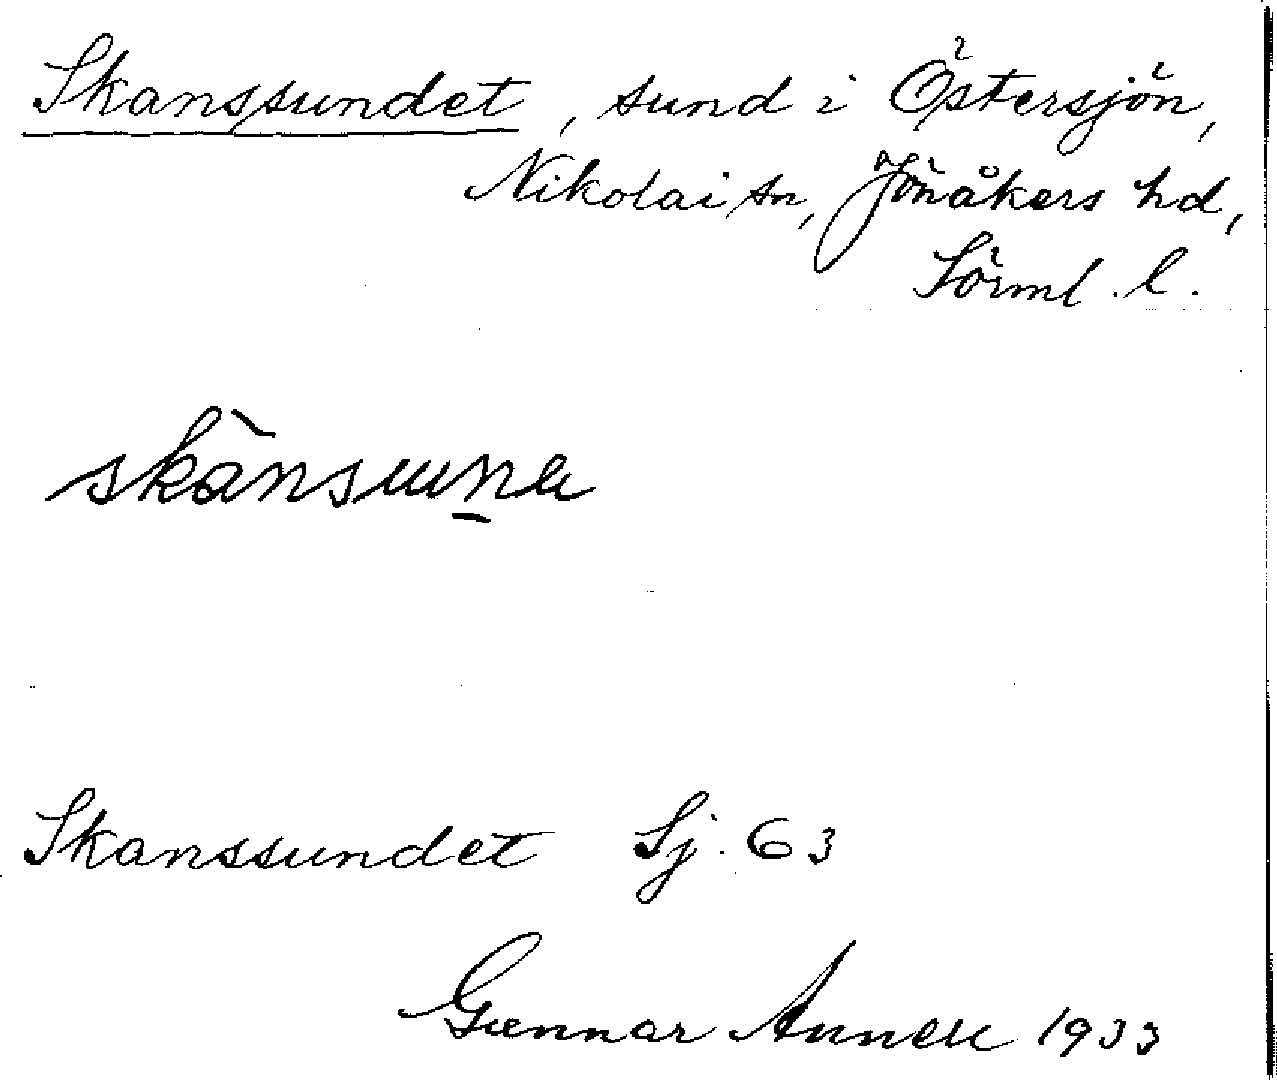 Skanssundet, sund i Östersjön,
Nikolai sn, Jönåkers hd,
Sörml. l.
skànsuṉa
Skanssundet Sj. 63
Gunnar Annell 1933